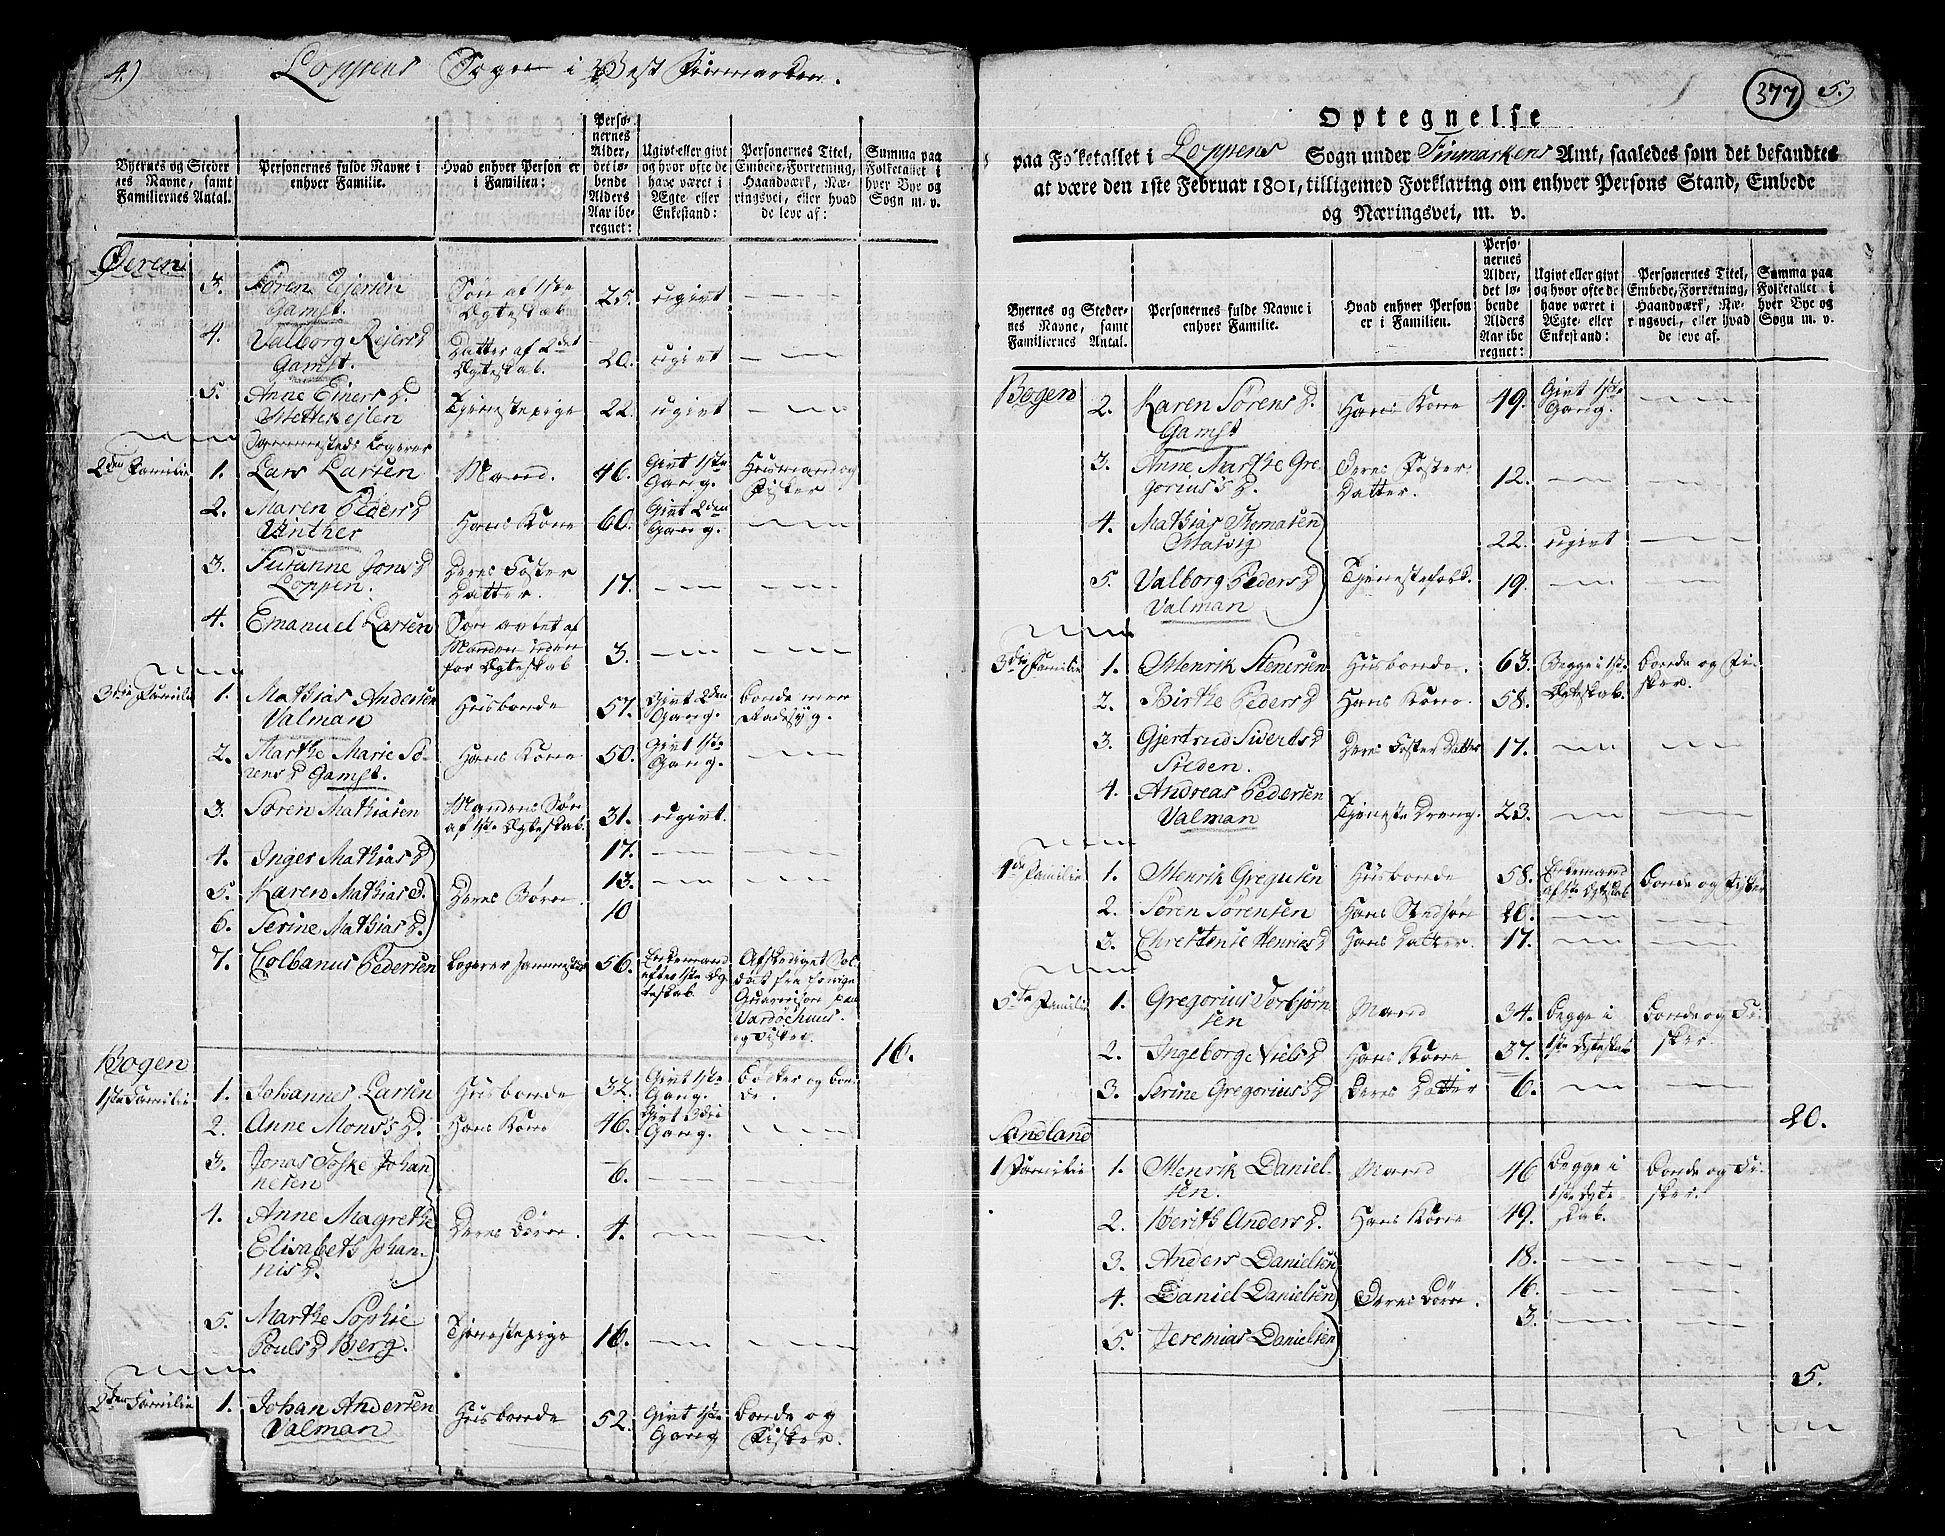 4.)
Loppens Sogn i Vest Finmarken.
Byernes og Steder
nes Navne, samt
Familiernes Antal.
Personernes fulde Navne i
enhver Familie.
Hvad enhver Person er
i Familien:
Perso-
nernes
Alder,
det lø-
bende
Alders
Aar ibe-
regnet:
Ugivt eller givt
og hvor ofte de
have været i
Ægte- eller
Enkestand:
Personernes Titel,
Embede, Forretning,
Haandværk, Næ-
ringsvei, eller hvad
de leve af:
Summa paa
Folketallet i
hver Bye og
Sogn m. v.
Øeren
3. Søren Ejersen Gamst. Søn af 1ste Ægteskab 25. ugivt
4. Valborg Rejersd Gamst. Datter af 2det Ægteskab. 20. ugivt
5. Anne Einersd. Mettevejlen Tjenestepige 22. ugivt
Sammesteds Logerer
2den Familie 1. Lars Larsen Mand. 46. Givt 1ste Gang. Huusmand og Fisker
2. Maren Pedersd Vinther Hans Kone 60. Givt 2den Gang.
3. Susanne Jonsd Loppen. Deres Foster Datter. 17.
4. Emanuel Larsen Søn avlet af Manden uden for Ægteskab 3.
3die Familie 1. Mathias Andersen Valman Huusbonde 57. Givt 2den Gang. bonde men Sadesyg.
2. Marthe Marie Sø-
rensd Gamst. Hans Kone 50. Givt 1ste Gang.
3. Søren Mathiasen Mandens Søn af 1ste Ægteskab. 31. ugivt.
4. Inger Mathiasd 17.
5. Karen Mathiasd. Deres Børn. 13.
6. Serine Mathiasd. 10
7. Colbanus Pedersen Logerer sammesteds 56. Enkemand efter 1ste Ægteskab. Afskediget Soldat fra forrige Guarnison paa Vardøehuus. og Fisker.
16.
Bogen
1ste Familie 1. Johannes Larsen Huusbonde 32. Givt 1ste Gang. bødker og bonde.
2. Anne Monsd. Hans Kone 46. Givt 3die Gang.
3. Jonas Foske Johan
nesen 6.
4. Anne Magrethe
Elisabeth Johan-
nisd. Deres Børn. 4.
5. Marthe Sophie
Poulsd Berg. Tjenestepige 16.
2den Familie 1. Johan Andersen
Valman Huusbonde 52. Givt 1ste Gang bonde og Fisker.
377 5.)
Optegnelse
paa Folketallet i Loppens Sogn under Finmarkens Amt, saaledes som det befandtes
at være den 1ste Februar 1801, tilligemed Forklaring om enhver Persons Stand, Embede
og Næringsvei, m. v.
Byernes og Steder-
nes Navne, samt
Familiernes Antal.
Personernes fulde Navne i
enhver Familie.
Hvad enhver Person
er i Familien.
Perso-
nernes
Alder,
det lø-
bende
Alders
Aar ibe-
regnet:
Ugivt eller givt
og hvor ofte de
have været i
Ægte- eller
Enkestand:
Personernes Titel,
Embede, Forretning,
Haandværk, Næ-
ringsvei, eller hvad
de leve af.
Summa paa
Folketallet i
hver Bye og
Sogn m. v.
Bogen 2. Karen Sørensd. Gamst Hans Kone 49. Givt 1ste Gang.
3. Anne Marthe Gre-
goriusd. Deres Foster Datter. 12.
4. Mathias Thomasen 22. ugivt
5. Valborg Pedersd Valman Tjenestefolk. 19.
3die Familie 1. Henrik Stenersen Huusbonde. 63. Begge i 1ste Ægteskab. bonde og Fisker.
2. Birthe Pedersd Hans Kone. 58.
3. Gjertrud Sivertsd Deres Foster Datter 17.
4. Andreas Pedersen Valman Tjeneste Dreng. 23.
4de Familie 1. Henrik Gregusen Huusbonde 58. Enkemand af 1ste Ægteskab bonde og Fisker
2. Søren Sørensen Hans Stedsøn 20.
3. Chrestense Henrisd Hans Datter. 17.
5te Familie 1. Gregorius Torbjørn
sen Mand 34. begge i 1ste Ægteskab bonde og Fisker.
2. Ingeborg Nielsd Hans Kone 37.
3. Serine Gregoriusd Deres Datter 6.
20.
Sandland
1 Familie 1. Henrik Daniel-
sen. Mand 46 begge i 1ste Ægteskab. bonde og Fisker.
2. Berith Andersd. Hans Kone 49.
3. Anders Danielsen 18.
4. Daniel Danielsen Deres Børn. 16.
5. Jeremias Danielsen 3.
5.